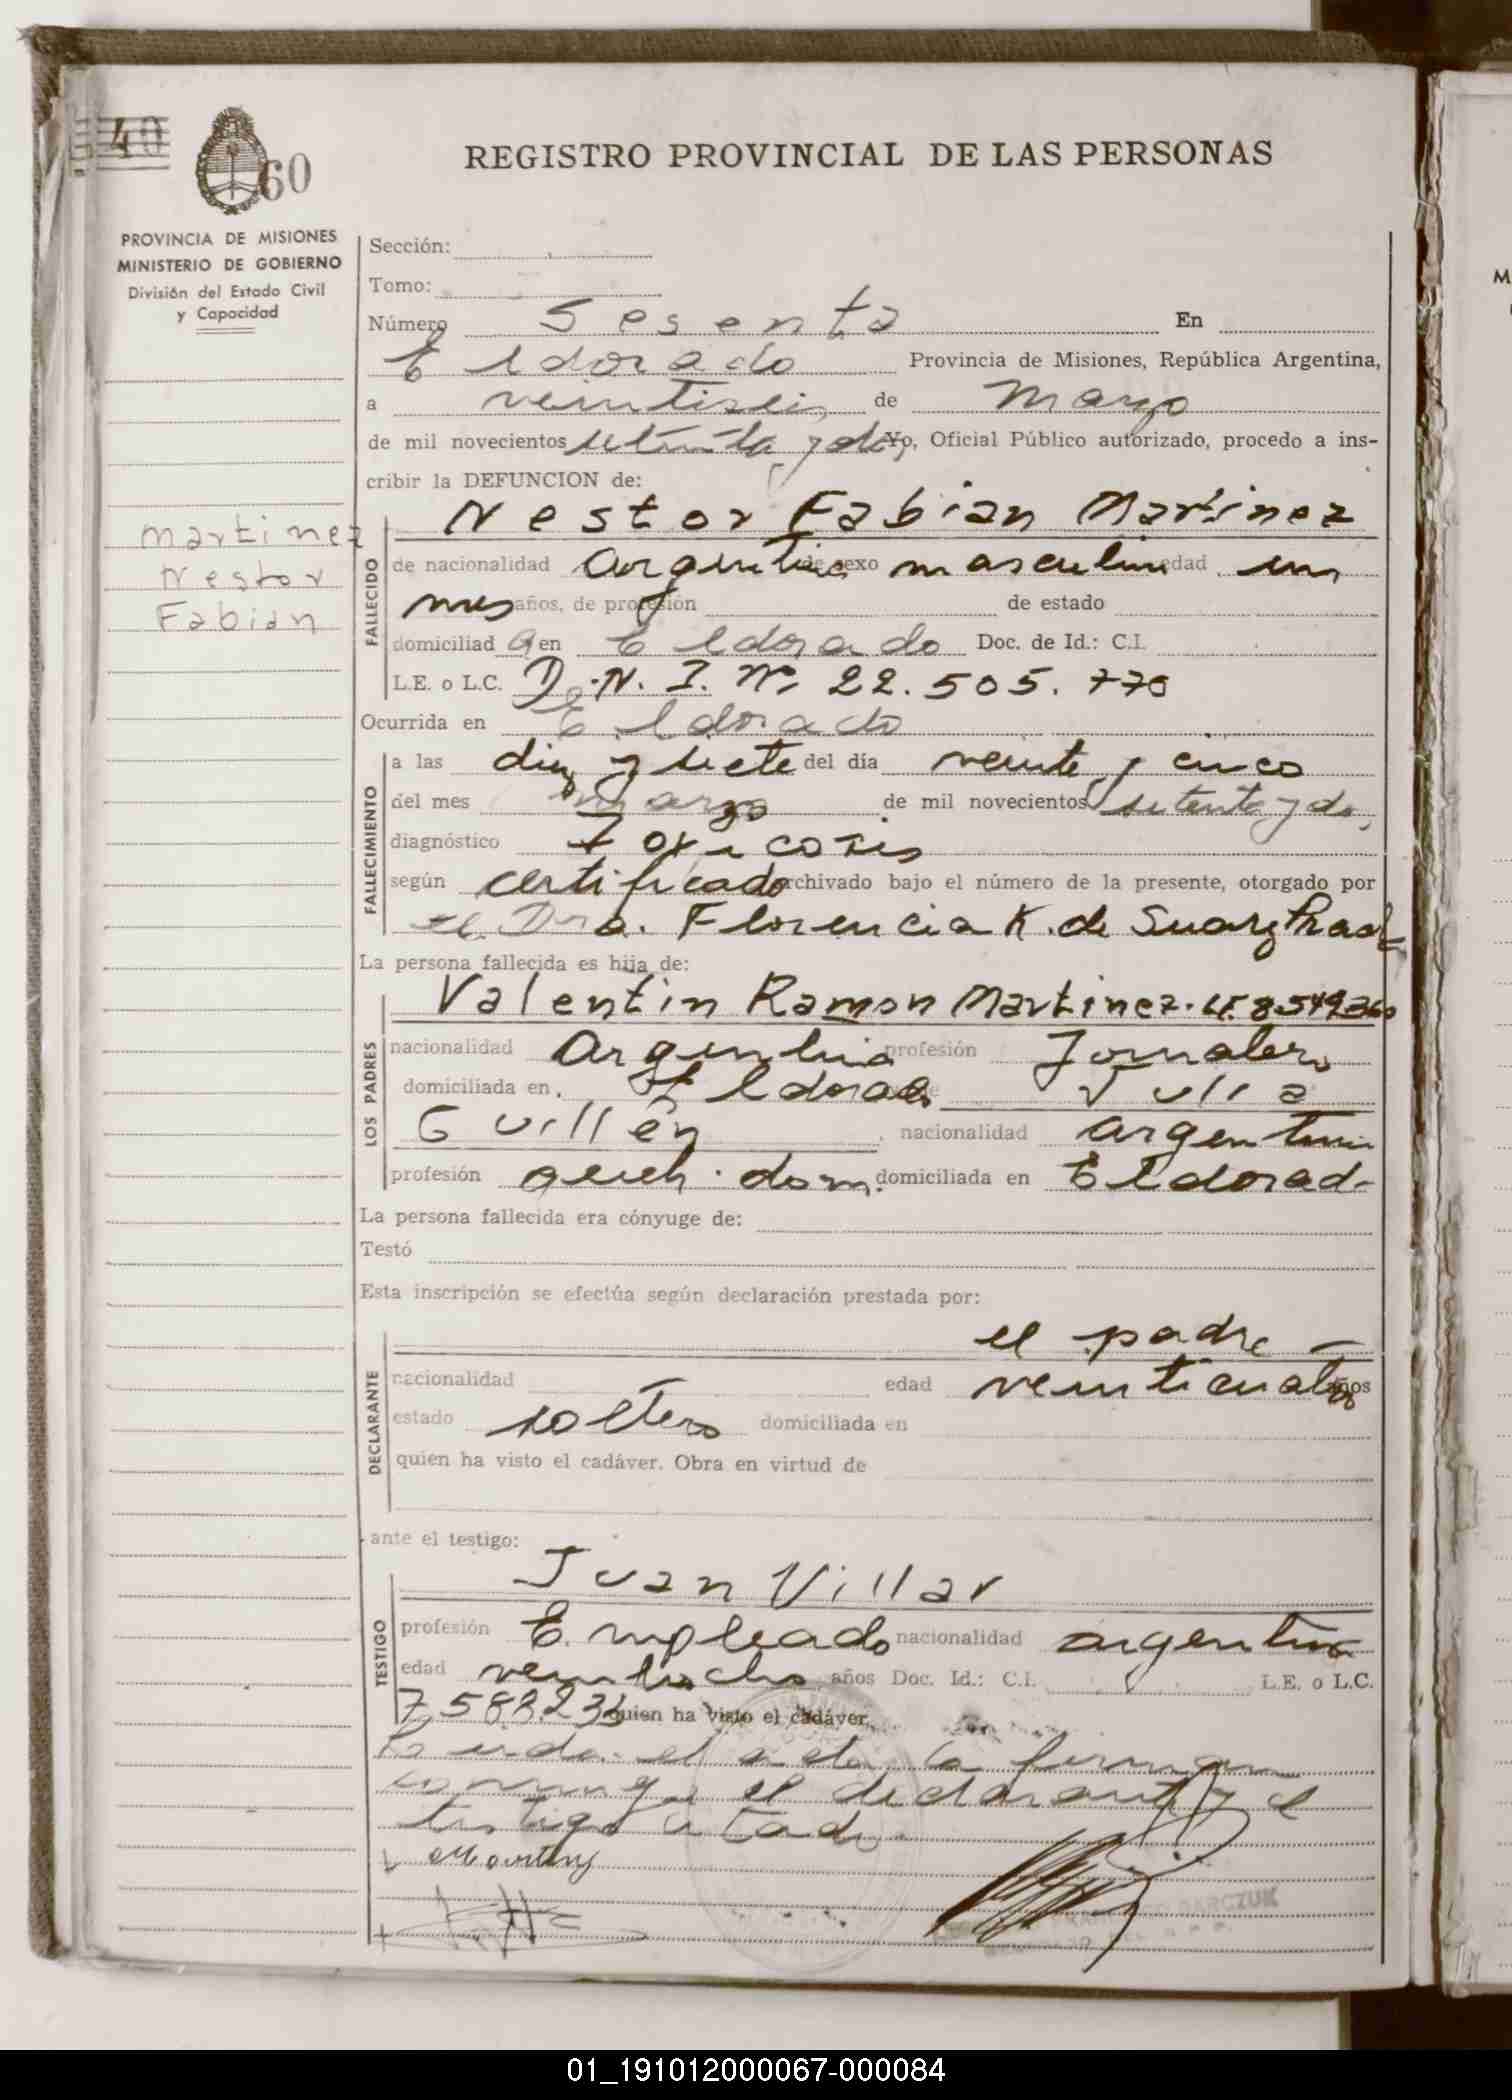 40
60
REGISTRO PROVINCIAL DE LAS PERSONAS
PROVINCIA DE MISIONES
MINISTERIO DE GOBIERNO
División del Estado Civil
y Capacidad
Sección:
Tomo:
Número Sesenta En
Eldorado Provincia de Misiones, República Argentina,
a veintiseis de Marzo
de mil novecientos setenta y dos Yo, Oficial Público autorizado, procedo a ins-
cribir la DEFUNCION de:
Martinez
Nestor
Fabian
FALLECIDO
Nestor Fabian Martinez
de nacionalidad argentina de sexo masculino edad un
mes años, de profesión de estado
domiciliad a en Eldorado Doc. de Id.: C.I.
L.E. o L.C. D.N.I. Nº 22.505.770
Ocurrida en Eldorado
FALLECIMIENTO
a las diez y siete del día veinte y cinco
del mes marzo de mil novecientos setenta y dos
diagnóstico Toxicosis
según certificado archivado bajo el número de la presente, otorgado por
Dra. Florencia K. de
La persona fallecida es hija de:
LOS PADRES
Valentin Ramon Martinez. LE 8549360
nacionalidad Argentina profesión Jornalero
domiciliada en Eldorado Julia
Guillén, nacionalidad argentina
profesión queh. dom. domiciliada en Eldorado
La persona fallecida era cónyuge de:
Testó
Esta inscripción se efectúa según declaración prestada por:
DECLARANTE
el padre
nacionalidad edad veinticuatro años
estado soltero domiciliada en
quien ha visto el cadáver. Obra en virtud de
ante el testigo:
TESTIGO
Juan Villar
profesión Empleado nacionalidad argentina
edad veintiocho años Doc. Id.: C.I. L.E. o L.C.
quien ha visto el cadáver.
Leida el acta, la firman
conmigo el declarante y el
testigo citado.
01_191012000067-000084